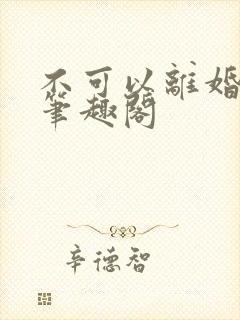 不可以離婚
筆趣閣
辛德智